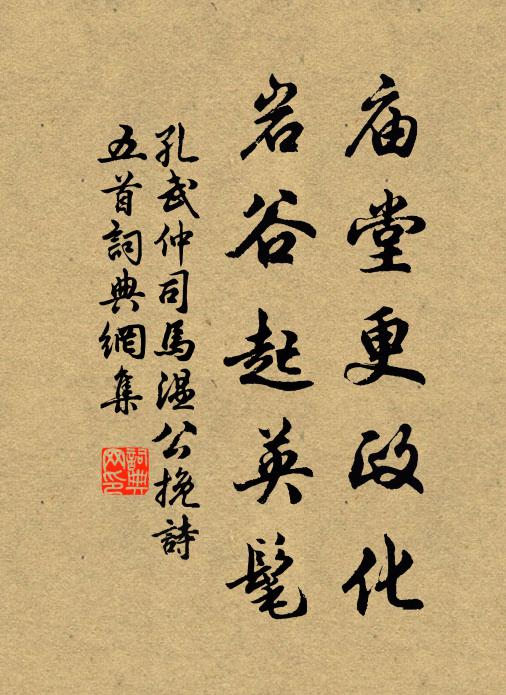 庙堂更政化
岩谷起英髦
孔武仲司馬温公挽詩
五首詞典網集
詞典网印